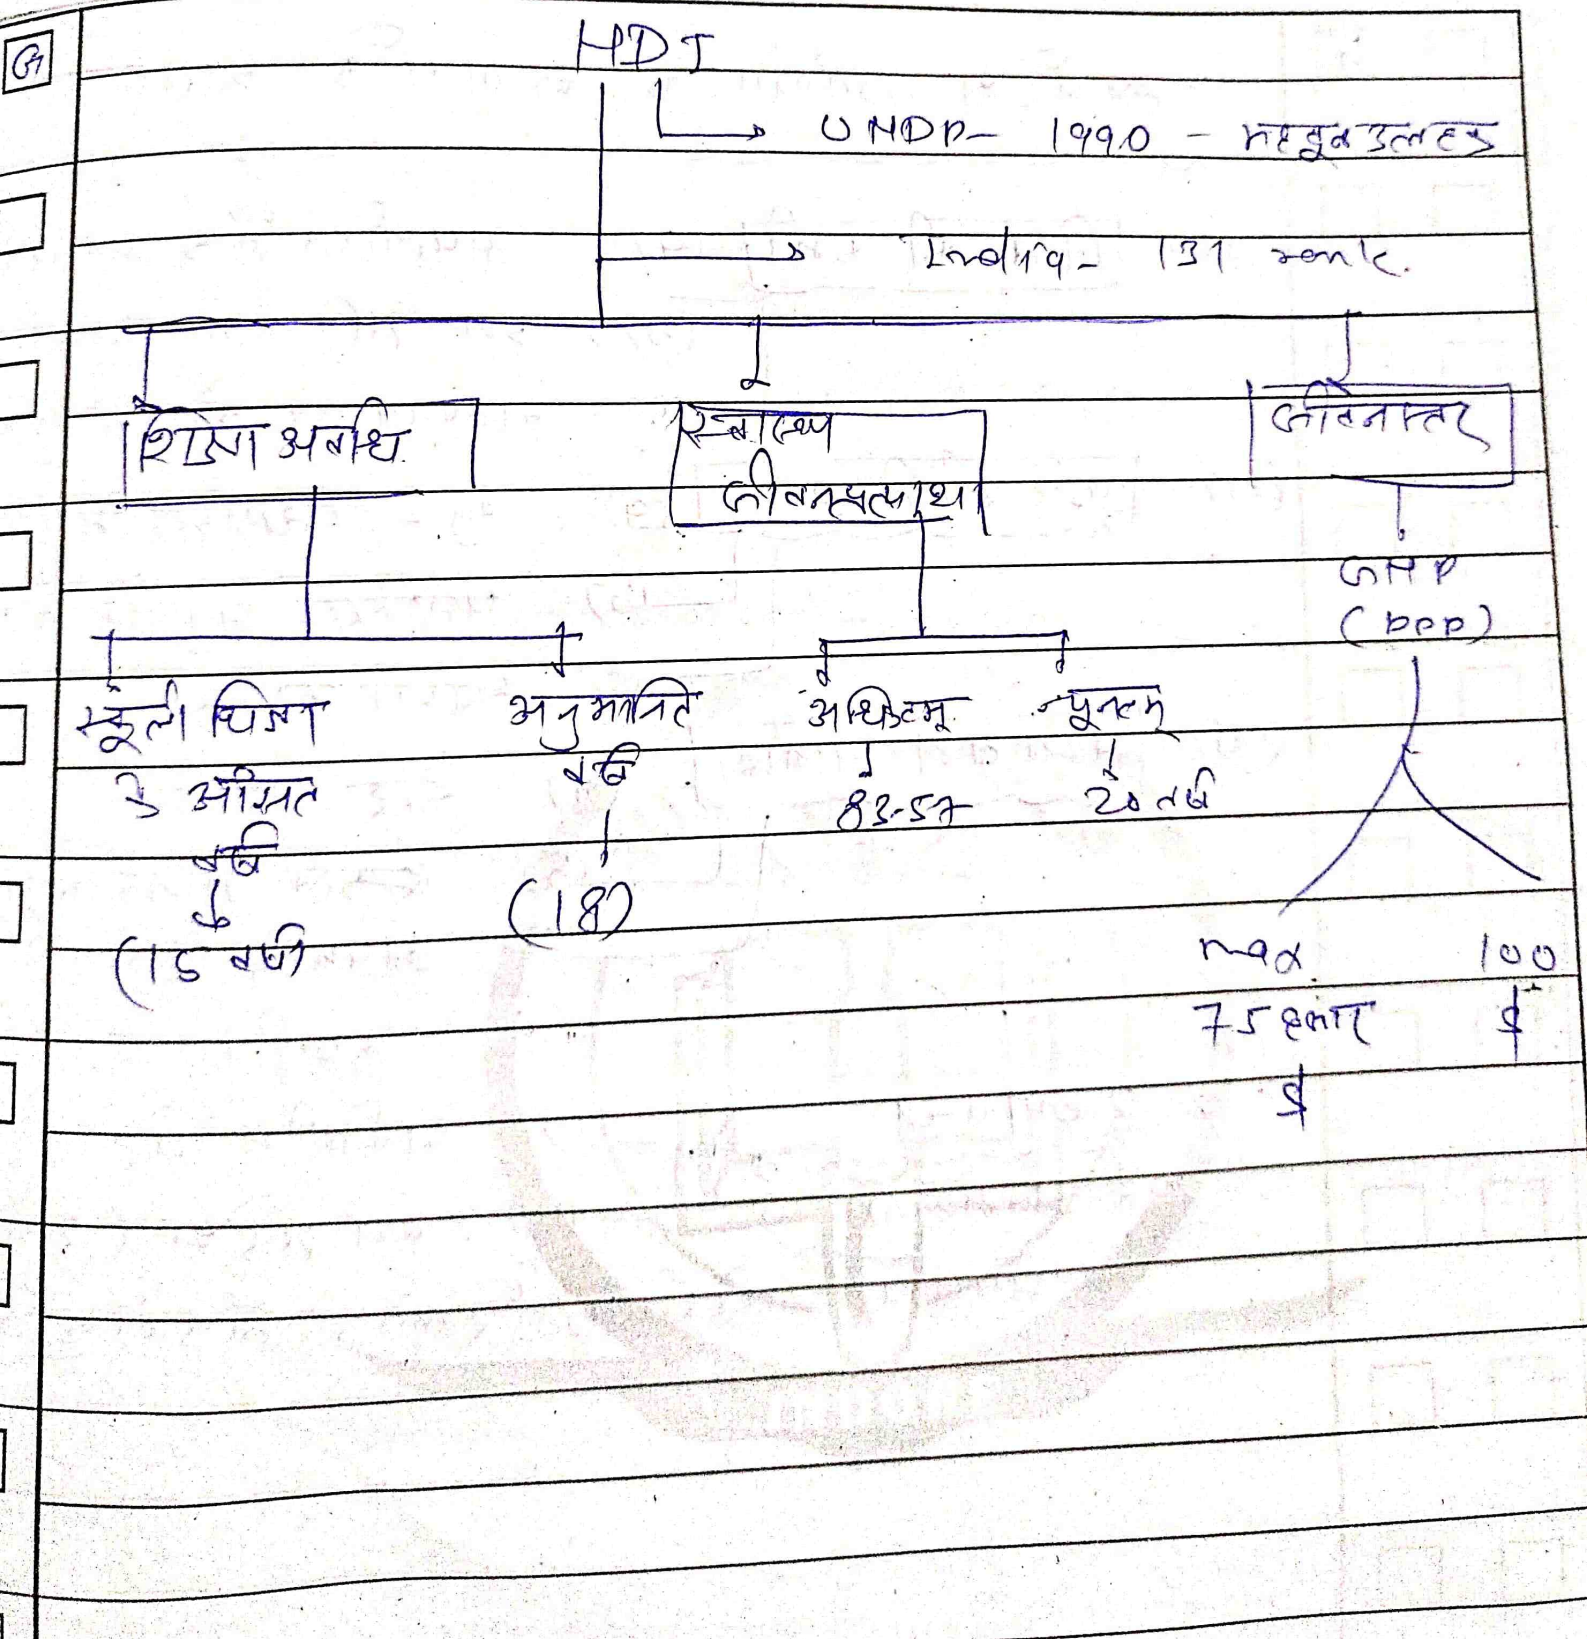 HDI
UNDP - 1990 - महबूब उल हक
India - 131 rank.
शिक्षा अवधि
स्वास्थ्य
जीवन प्रत्याशा
जीवनस्तर
GNP
(PPP)
स्कूली शिक्षा
के औसत
वर्ष
(15 वर्ष)
अनुमानित
वर्ष
(18)
अधिकतम्
83.57
न्यूनतम्
20 वर्ष
max
75 हजार
$
100
$